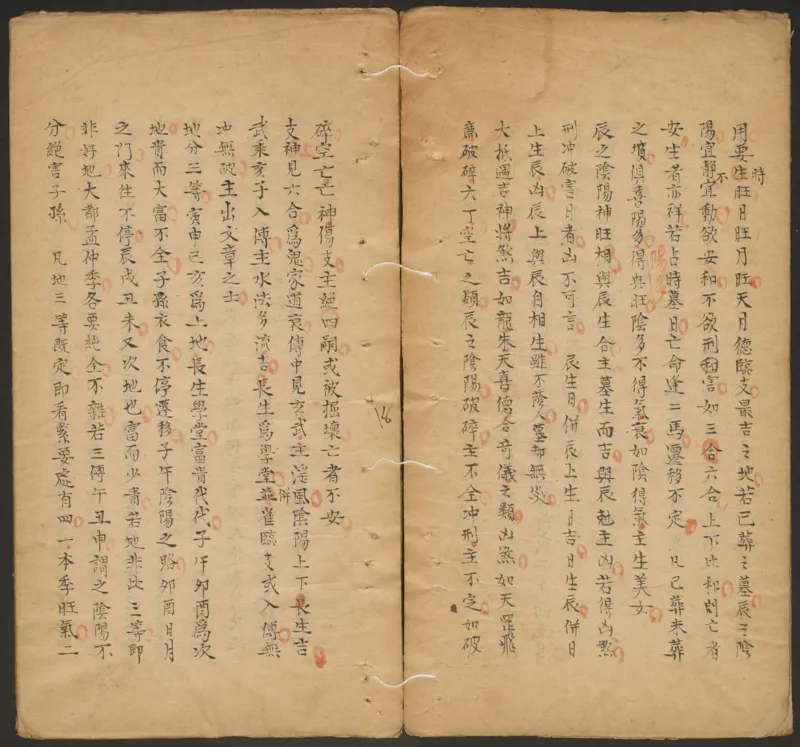 用要生旺日旺月旺天月德臨支最吉之地若已葬之墓辰之陰
時
陽宜靜宜動欲安和不欲刑和害如三合六合上下比和則亡者
不
安生者亦祥若占時墓日亡命逢二馬遷移不定 凡已葬未葬
之墳俱喜陽多得與旺陰多不得氣衰如陰得氣主生美女
陽
辰之陰陽神旺相與辰生合主墓生而吉與辰尅主凶若得凶煞
刑冲破害日者凶不可言 辰生日併辰上生日吉日生辰併日
上生辰凶辰上與辰自相生雖不蔭人墓却無災
大抵遇吉神將煞吉如龍朱天喜德合奇儀之類凶煞如天罡飛
廉破碎六丁空亡之類辰之陰陽破碎主不全冲刑主不定如破
16
碎空亡亡神傷支主絕四嗣或被掘壞亡者不安
支神見六合為鬼家道衰傳中見亥武主淫風陰陽上下長生吉
併
武乘亥子入傳主水法多流吉長生為學堂並雀臨支或入傳無
冲無破主出文章之士
地分三等寅申巳亥為上地長生學堂富貴代代子午卯酉為次
地貴而大富不全子孫衣食不停遷移子午陰陽之路卯酉日月
之門來往不停辰戌丑未又次地也富而少貴若地非此三等即
非好地大都孟仲季各要純全不雜若三傳午丑申謂之陰陽不
分絕害子孫 凡地三等既定即看緊要處有四一本季旺氣二